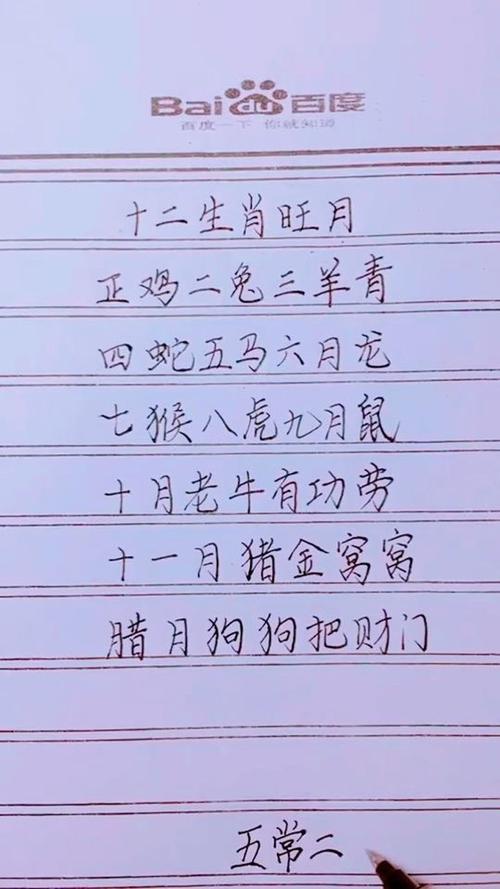 Bai du 百度
百度一下 你就知道
十二生肖旺月
正鸡二兔三羊青
四蛇五马六月龙
七猴八虎九月鼠
十月老牛有功劳
十一月猪金窝窝
腊月狗狗把财门
五常二